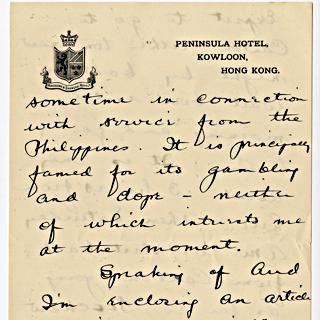 PENINSULA HOTEL,
KOWLOON,
HONG KONG.
sometime in connection
with service from the
Philippines. It is principally
famed for its gambling
and dope – neither
of which intrests me
at the moment.
Speaking of Aud
I'm enclosing an article